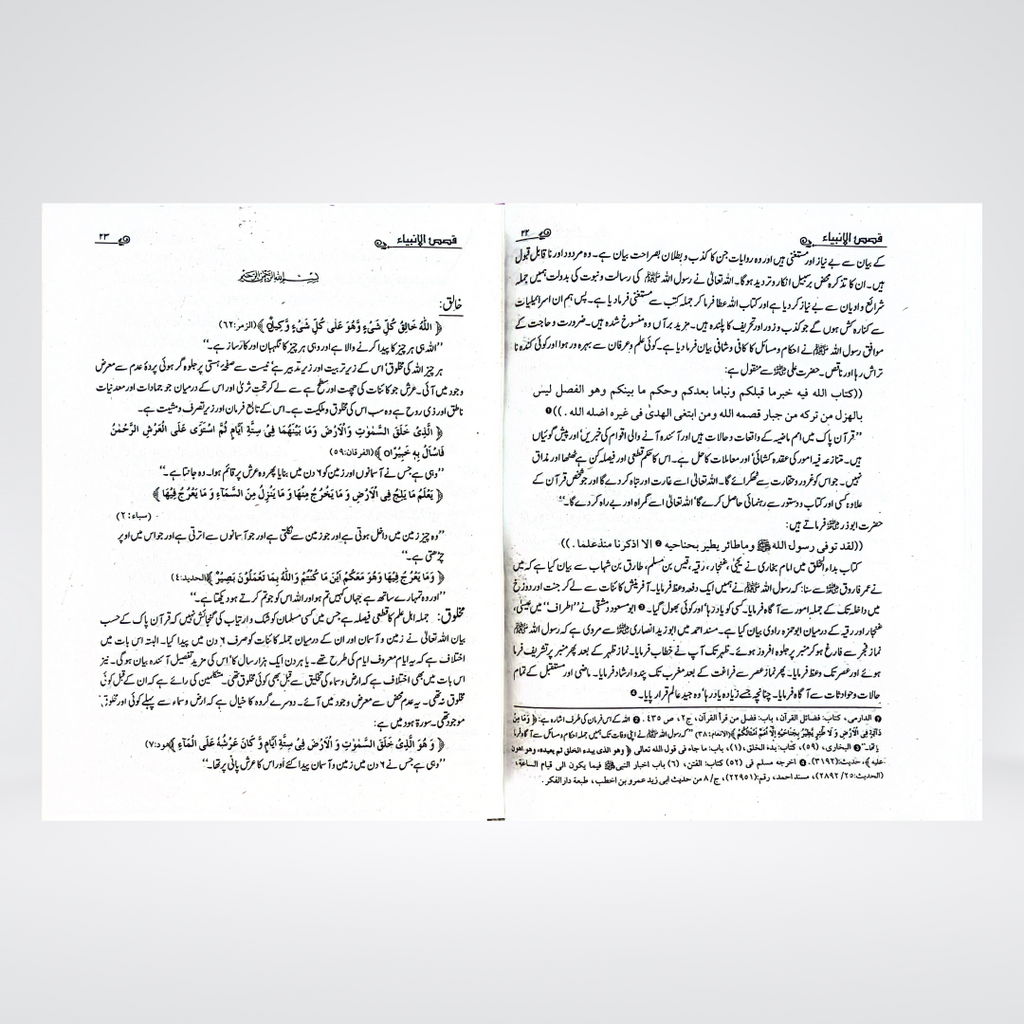 قصص الانبیاء ۲۲
کے بیان سے بے نیاز اور مستغنی ہیں اور وہ روایات جن کا کذب و بطلان بصراحت بیان ہے۔ وہ مردود اور ناقابل قبول
ہیں۔ ان کا تذکرہ محض برسبیل انکار و تردید ہوگا۔ اللہ تعالیٰ نے رسول اللہ ﷺ کی رسالت و نبوت کی بدولت ہمیں جملہ
شرائع و ادیان سے بے نیاز کر دیا ہے اور کتاب اللہ عطا فرما کر جملہ کتب سے مستغنی فرما دیا ہے۔ پس ہم ان اسرائیلیات
سے کنارہ کش ہوں گے جو کذب و زور اور تحریف کا پلندہ ہیں۔ مزید برآں وہ منسوخ شدہ ہیں۔ ضرورت و حاجت کے
موافق رسول اللہ ﷺ نے احکام و مسائل کا کافی و شافی بیان فرما دیا ہے۔ کوئی علم و عرفان سے بہرہ ور ہوا اور کوئی کندہ نا
تراش رہا اور ناقص۔ حضرت علی ؓ سے منقول ہے:
((کتاب الله فیه خبرما قبلکم ونباما بعدکم وحکم ما بینکم وهو الفصل لیس
بالهزل من ترکه من جبار قصمه الله ومن ابتغی الهدیٰ فی غیره اضله الله ۔)) ❶
”قرآن پاک میں امم ماضیہ کے واقعات و حالات ہیں اور آئندہ آنے والی اقوام کی خبریں اور پیش گوئیاں
ہیں۔ متنازعہ فیہ امور کی عقدہ کشائی اور معاملات کا حل ہے۔ اس کا حکم قطعی اور فیصلہ کن ہے ٹھٹھا اور مذاق
نہیں۔ جو اس کو غرور و حقارت سے ٹھکرائے گا۔ اللہ تعالیٰ اسے غارت اور تباہ کر دے گا اور جو شخص قرآن کے
علاوہ کسی اور کتاب و دستور سے رہنمائی حاصل کرے گا اللہ تعالیٰ اسے گمراہ اور بے راہ کر دے گا۔“
حضرت ابوذر ؓ فرماتے ہیں:
((لقد توفی رسول الله ﷺ وماطائر یطیر بجناحیه ❷ الا اذکرنا منه علما۔))
کتاب بداء الخلق میں امام بخاری نے یحییٰ، غنجار، رقیہ، قیس بن مسلم، طارق بن شہاب سے بیان کیا ہے کہ میں
نے عمر فاروق ؓ سے سنا: کہ رسول اللہ ﷺ نے ہمیں ایک دفعہ وعظ فرمایا۔ آفرینش کائنات سے لے کر جنت اور دوزخ
میں داخلہ تک کے جملہ امور سے آگاہ فرمایا۔ کسی کو یاد رہا اور کوئی بھول گیا۔ ❸ ابو مسعود دمشقی نے ”اطراف“ میں عیسیٰ،
غنجار اور رقیہ کے درمیان ابو حمزہ راوی بیان کیا ہے۔ مسند احمد میں ابوزید انصاری ؓ سے مروی ہے کہ رسول اللہ ﷺ
نماز فجر سے فارغ ہو کر منبر پر جلوہ افروز ہوئے۔ ظہر تک آپ نے خطاب فرمایا۔ نماز ظہر کے بعد پھر منبر پر تشریف فرما
ہوئے اور عصر تک وعظ فرمایا۔ پھر نماز عصر سے فراغت کے بعد مغرب تک پند و ارشاد فرمایا۔ ماضی اور مستقبل کے تمام
حالات و حوادثات سے آگاہ فرمایا۔ چنانچہ جسے زیادہ یاد رہا وہ جید عالم قرار پایا۔ ❹
❶ الدارمی، کتاب: فضائل القرآن، باب: فضل من قرأ القرآن، ج۲، ص ۴۳۵۔ ❷ اللہ کے اس فرمان کی طرف اشارہ ہے: ﴿وَمَا مِنْ
دَآبَّةٍ فِی الْاَرْضِ وَ لَا طٰٓئِرٍ یَّطِیْرُ بِجَنَاحَیْهِ اِلَّآ اُمَمٌ اَمْثَالُكُمْ﴾ (الانعام: ۳۸) ”کہ رسول اللہ ﷺ نے اپنی وفات تک ہمیں جملہ احکام و مسائل سے آگاہ فرما
دیا تھا۔“ ❸ البخاری، (۵۹)، کتاب: بدء الخلق، (۱)، باب: ما جاء فی قول الله تعالی ﴿وهو الذی یبدء الخلق ثم یعیده، وهو اهون
علیه﴾، حدیث: (۳۱۹۲)۔ ❹ اخرجه مسلم فی (۵۲) کتاب: الفتن، (۶) باب اخبار النبی ﷺ فیما یکون الی قیام الساعة،
(الحدیث: ۲۵/ ۲۸۹۲)، مسند احمد، رقم: (۲۲۹۵۱)، ج/ ۸ من حدیث ابی زید عمرو بن اخطب، طبعة دارالفکر۔
قصص الانبیاء ۲۳
بسم اللہ الرحمن الرحیم
خالق:
﴿ اَللّٰهُ خَالِقُ كُلِّ شَیْءٍ وَّهُوَ عَلٰى كُلِّ شَیْءٍ وَّكِیْلٌ ﴾ (الزمر:۶۲)
”اللہ ہی ہر چیز کا پیدا کرنے والا ہے اور وہی ہر چیز کا نگہبان اور کارساز ہے۔“
ہر چیز اللہ کی مخلوق اس کے زیر تربیت اور زیر تدبیر ہے نیست سے صفحۂ ہستی پر جلوہ گر ہوئی پردۂ عدم سے معرض
وجود میں آئی۔ عرش جو کائنات کی چھت اور سطح ہے سے لے کر تحت ثریٰ اور اس کے درمیان جو جمادات اور معدنیات
ناطق اور ذی روح ہے وہ سب اس کی مخلوق و ملکیت ہے۔ اس کے تابع فرمان اور زیر تصرف و مشیت ہے۔
﴿ اَلَّذِیْ خَلَقَ السَّمٰوٰتِ وَالْاَرْضَ وَمَا بَیْنَهُمَا فِیْ سِتَّةِ اَیَّامٍ ثُمَّ اسْتَوٰى عَلَى الْعَرْشِ اَلرَّحْمٰنُ
فَاسْاَلْ بِهٖ خَبِیْرًا ﴾ (الفرقان:۵۹)
”وہی ہے جس نے آسمانوں اور زمین کو ۶ دن میں بنایا پھر وہ عرش پر قائم ہوا۔ وہ جانتا ہے۔“
﴿ یَعْلَمُ مَا یَلِجُ فِی الْاَرْضِ وَ مَا یَخْرُجُ مِنْهَا وَ مَا یَنْزِلُ مِنَ السَّمَآءِ وَ مَا یَعْرُجُ فِیْهَا ﴾
(سباء:۲)
”وہ چیز زمین میں داخل ہوتی ہے اور جو زمین سے نکلتی ہے اور جو آسمانوں سے اترتی ہے اور جو اس میں اوپر
چڑھتی ہے۔“
﴿ وَمَا یَعْرُجُ فِیْهَا وَهُوَ مَعَكُمْ اَیْنَ مَا كُنْتُمْ وَاللّٰهُ بِمَا تَعْمَلُوْنَ بَصِیْرٌ ﴾ (الحدید:۴)
”اور وہ تمہارے ساتھ ہے جہاں کہیں تم ہو اور اللہ اس کو جو تم کرتے ہو دیکھتا ہے۔“
مخلوق: جملہ اہل علم کا قطعی فیصلہ ہے جس میں کسی مسلمان کو شک و ارتیاب کی گنجائش نہیں کہ قرآن پاک کے حسب
بیان اللہ تعالیٰ نے زمین و آسمان اور ان کے درمیان جملہ کائنات کو صرف ۶ دن میں پیدا کیا۔ البتہ اس بات میں
اختلاف ہے کہ یہ ایام معروف ایام کی طرح تھے۔ یا ہر دن ایک ہزار سال کا اس کی مزید تفصیل آئندہ بیان ہوگی۔ نیز
اس بات میں بھی اختلاف ہے کہ ارض و سماء کی تخلیق سے قبل بھی کوئی مخلوق تھی۔ متکلمین کی رائے ہے کہ ان کے قبل کوئی
مخلوق نہ تھی۔ یہ عدم محض سے معرض وجود میں آئے۔ دوسرے گروہ کا خیال ہے کہ ارض و سماء سے پہلے کوئی اور مخلوق
موجود تھی۔ سورۃ ہود میں ہے:
﴿ وَ هُوَ الَّذِیْ خَلَقَ السَّمٰوٰتِ وَ الْاَرْضَ فِیْ سِتَّةِ اَیَّامٍ وَّ كَانَ عَرْشُهٗ عَلَى الْمَآءِ ﴾ (ہود:۷)
”وہی ہے جس نے ۶ دن میں زمین و آسمان پیدا کئے اور اس کا عرش پانی پر تھا۔“